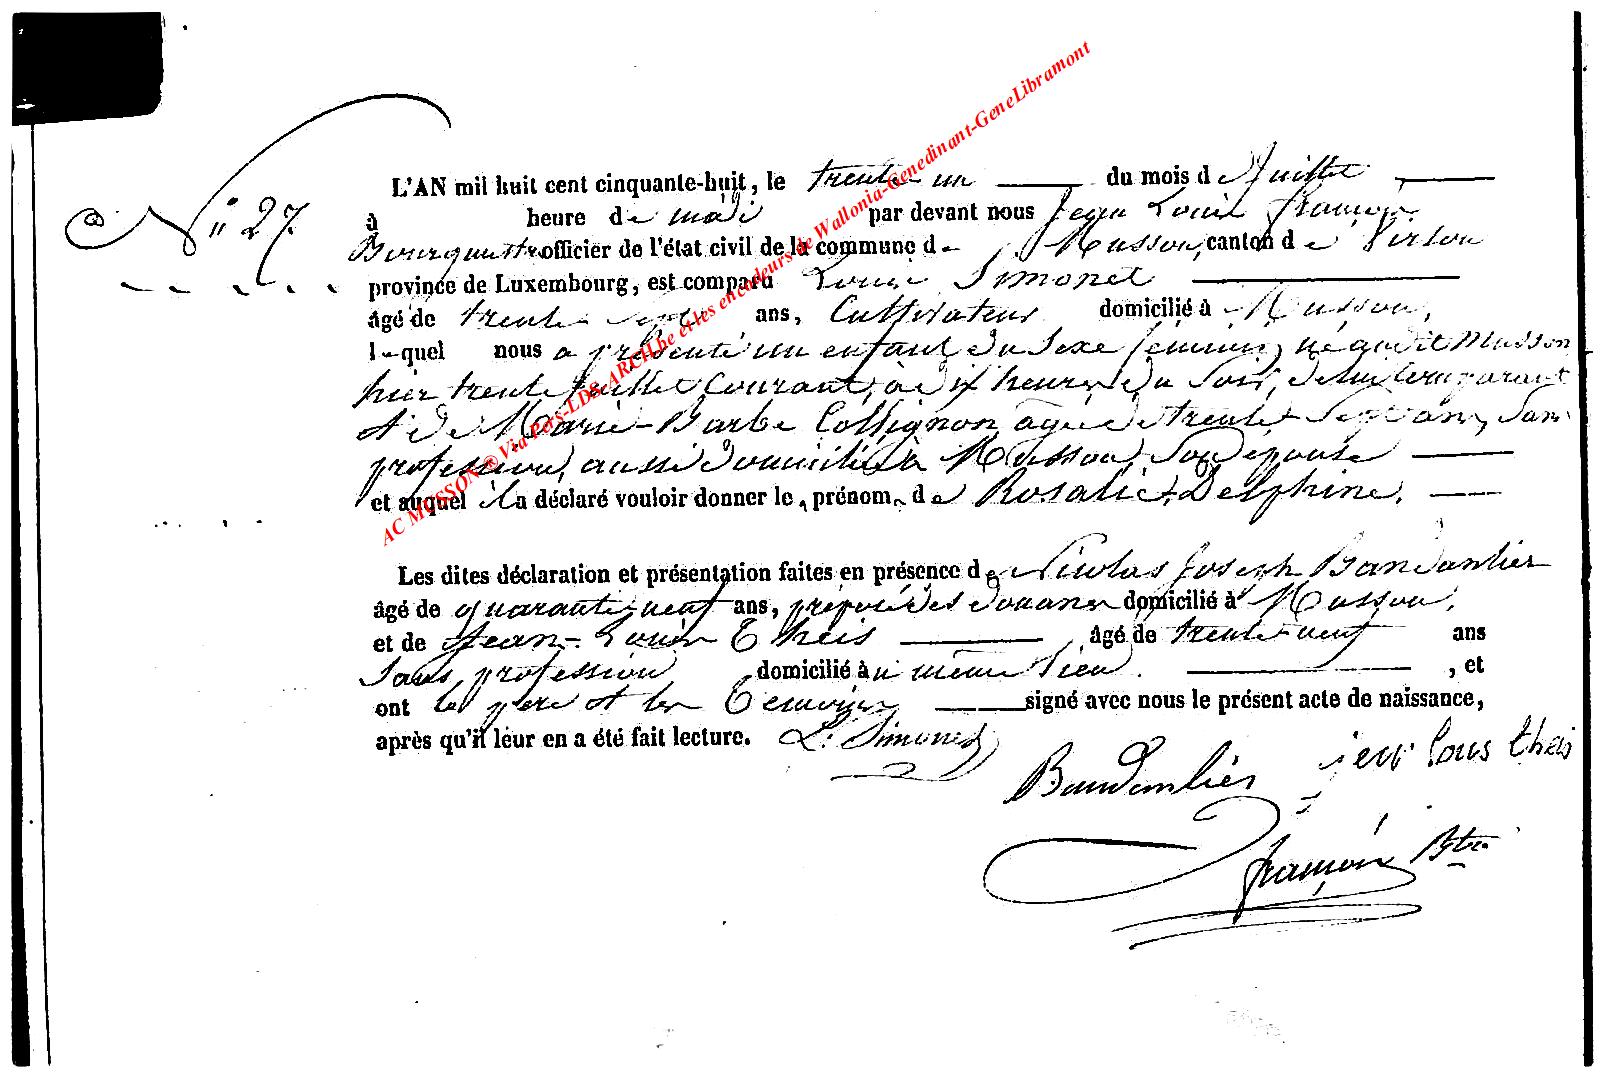 N° 27.
L'AN mil huit cent cinquante-huit, le trente un du mois de Juillet
à heure de midi par devant nous Jean Louis françois
Bourguestre officier de l'état civil de la commune de Musson, canton de Virton
province de Luxembourg, est comparu Louis Simonet
âgé de trente sept ans, Cultivateur domicilié à Musson,
lequel nous a présenté un enfant du sexe féminin, né audit Musson
hier trente juillet Courant, à dix heures du soir, de lui Comparant
et de Marie-Barbe Collignon âgée de trente-sept ans, sans
profession, aussi domiciliée à Musson, son épouse
et auquel il a déclaré vouloir donner les prénoms de Rosalie-Delphine.
Les dites déclaration et présentation faites en présence de Nicolas Joseph Baudanlier
âgé de quarante-neuf ans, préposé des douanes domicilié à Musson,
et de Jean-Louis Theis âgé de trente-neuf ans
Sans profession domicilié au même lieu. , et
ont le père et les Témoins signé avec nous le présent acte de naissance,
après qu'il leur en a été fait lecture. L. Simonet
Baudanlier jean lous theis
françois Btre
AC MUSSON ® Via Pois-LDS-ARCH.be et les encodeurs de Wallonia-Genedinant-GeneLibramont